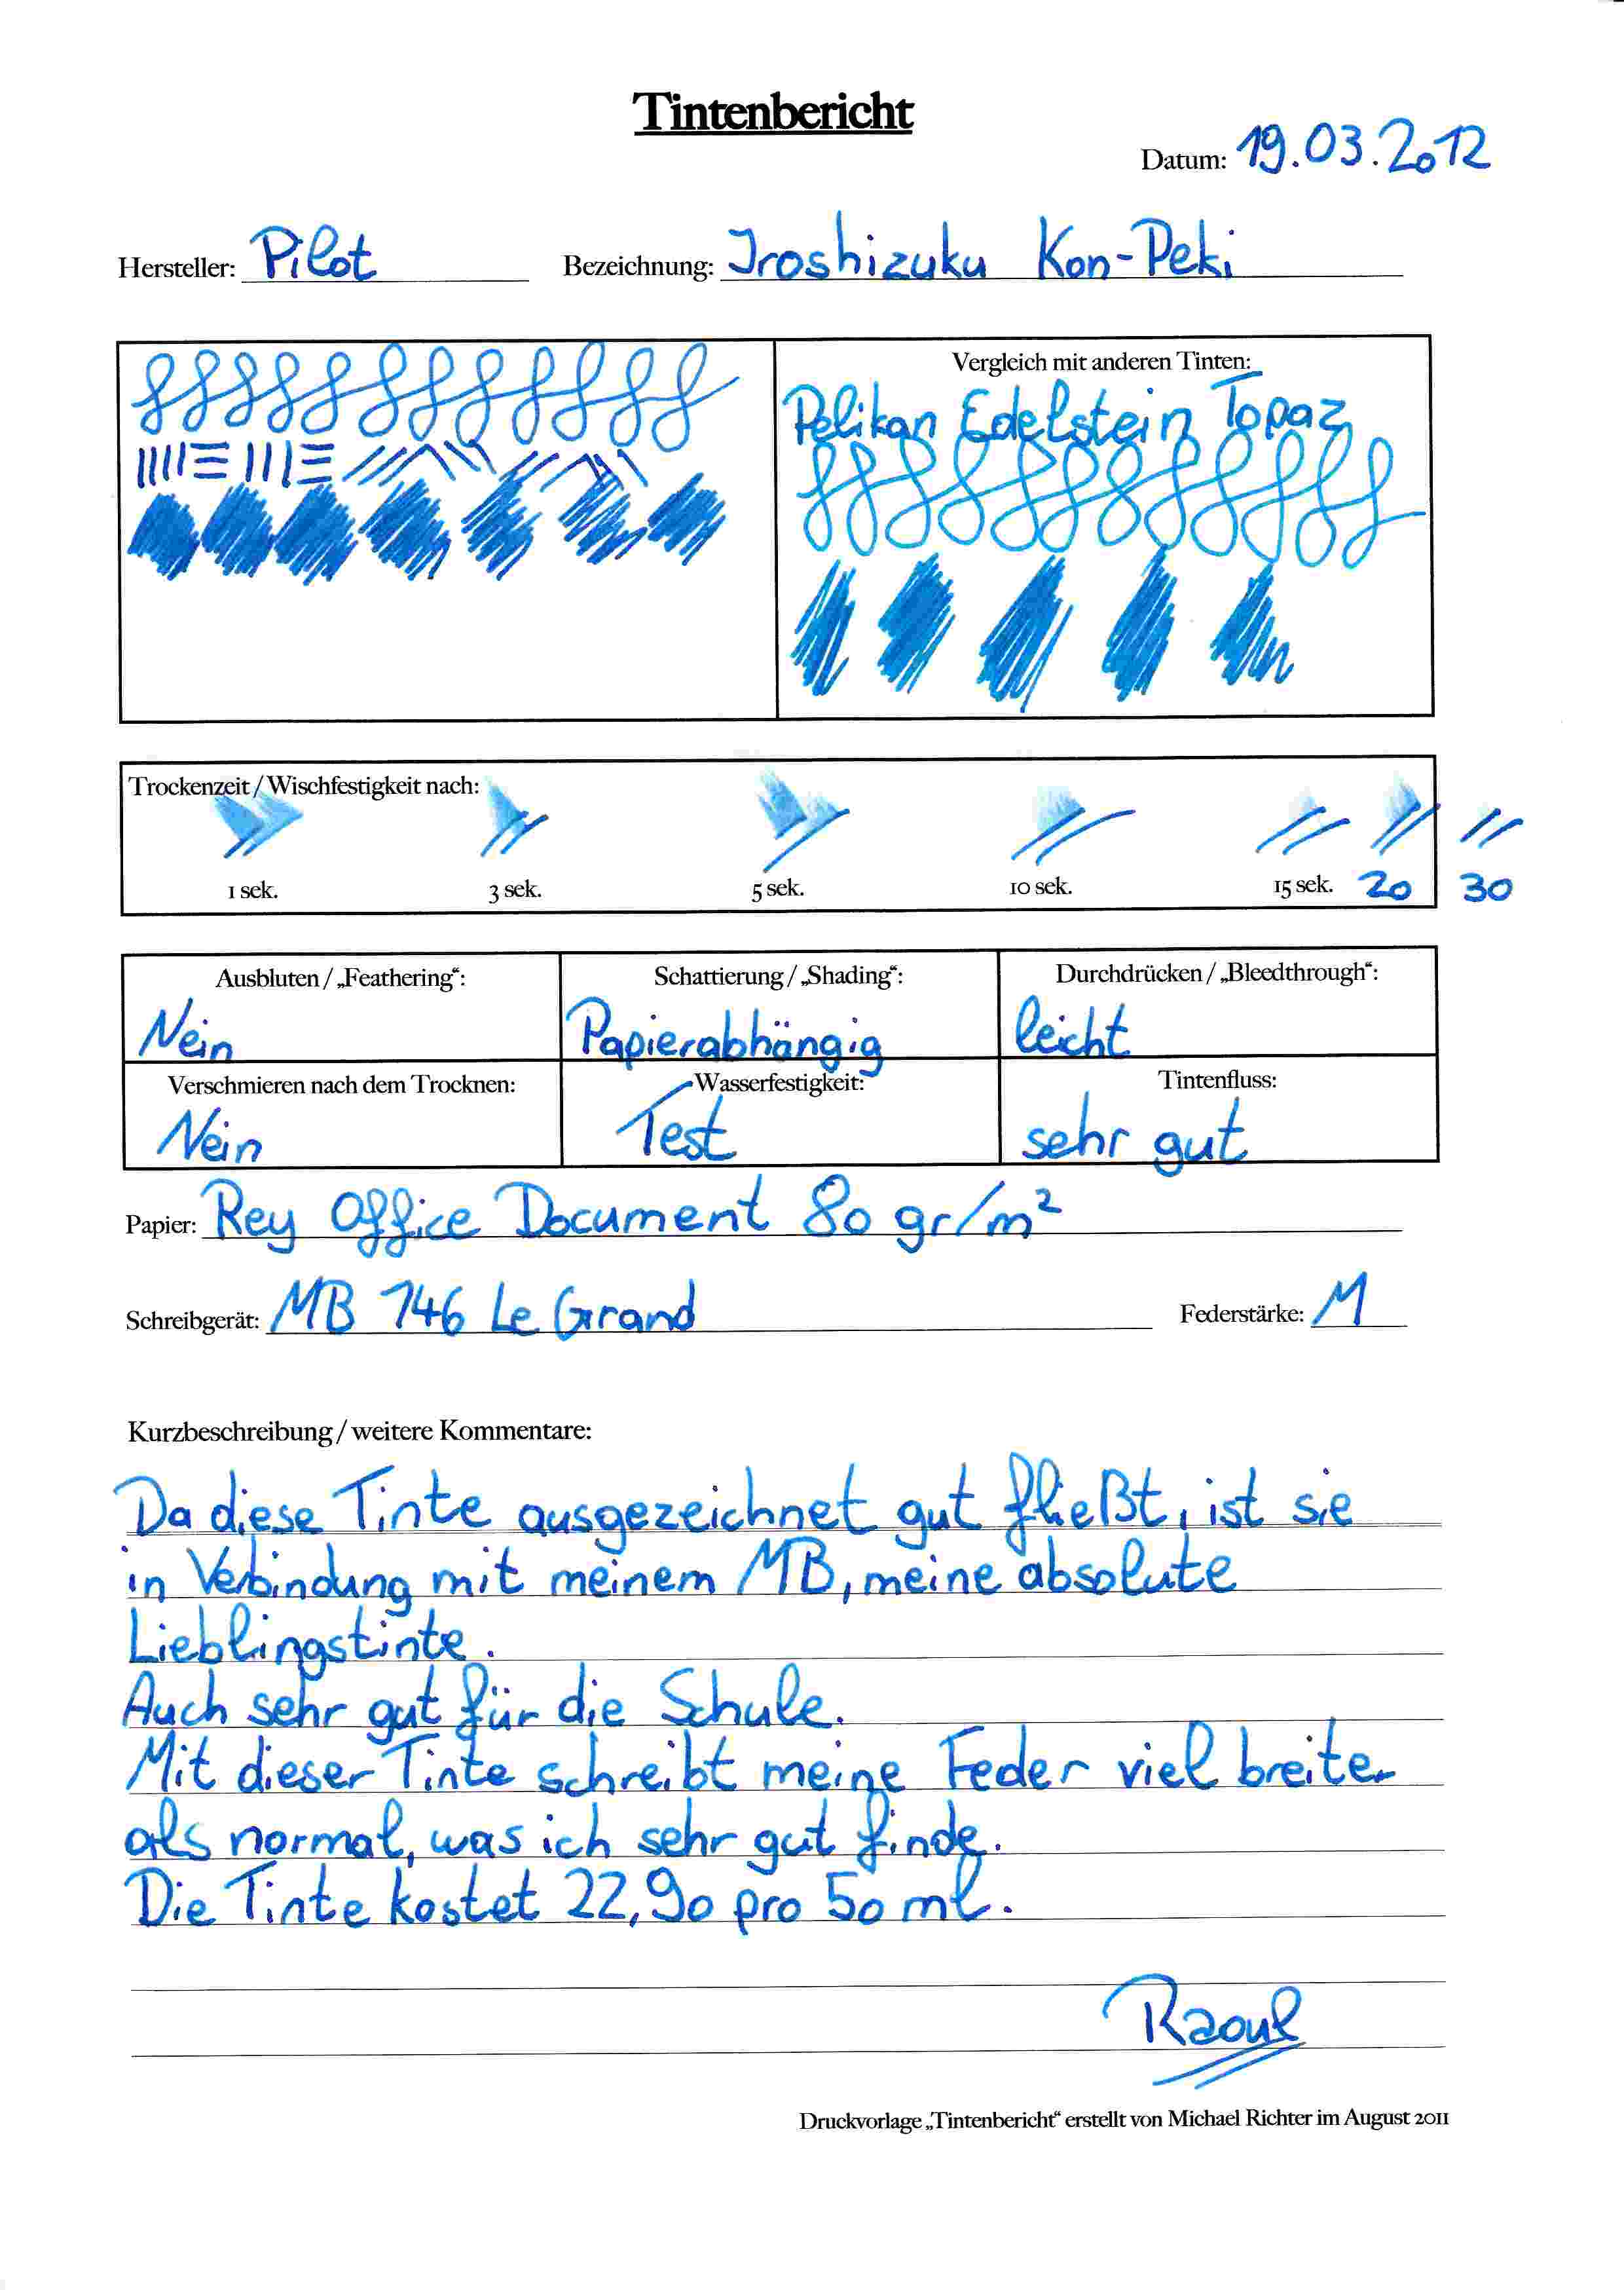 Tintenbericht
Datum: 19.03.2012
Hersteller: Pilot Bezeichnung: Iroshizuku Kon-Peki
Vergleich mit anderen Tinten:
Pelikan Edelstein Topaz
Trockenzeit / Wischfestigkeit nach:
1 sek. 3 sek. 5 sek. 10 sek. 15 sek. 20 30
Ausbluten / „Feathering“: Schattierung / „Shading“: Durchdrücken / „Bleedthrough“:
Nein Papierabhängig leicht
Verschmieren nach dem Trocknen: Wasserfestigkeit: Tintenfluss:
Nein Test sehr gut
Papier: Rey Office Document 80 gr/m²
Schreibgerät: MB 146 Le Grand Federstärke: M
Kurzbeschreibung / weitere Kommentare:
Da diese Tinte ausgezeichnet gut fließt, ist sie
in Verbindung mit meinem MB, meine absolute
Lieblingstinte.
Auch sehr gut für die Schule.
Mit dieser Tinte schreibt meine Feder viel breiter
als normal, was ich sehr gut finde.
Die Tinte kostet 22,90 pro 50 ml.
Raoul
Druckvorlage „Tintenbericht“ erstellt von Michael Richter im August 2011